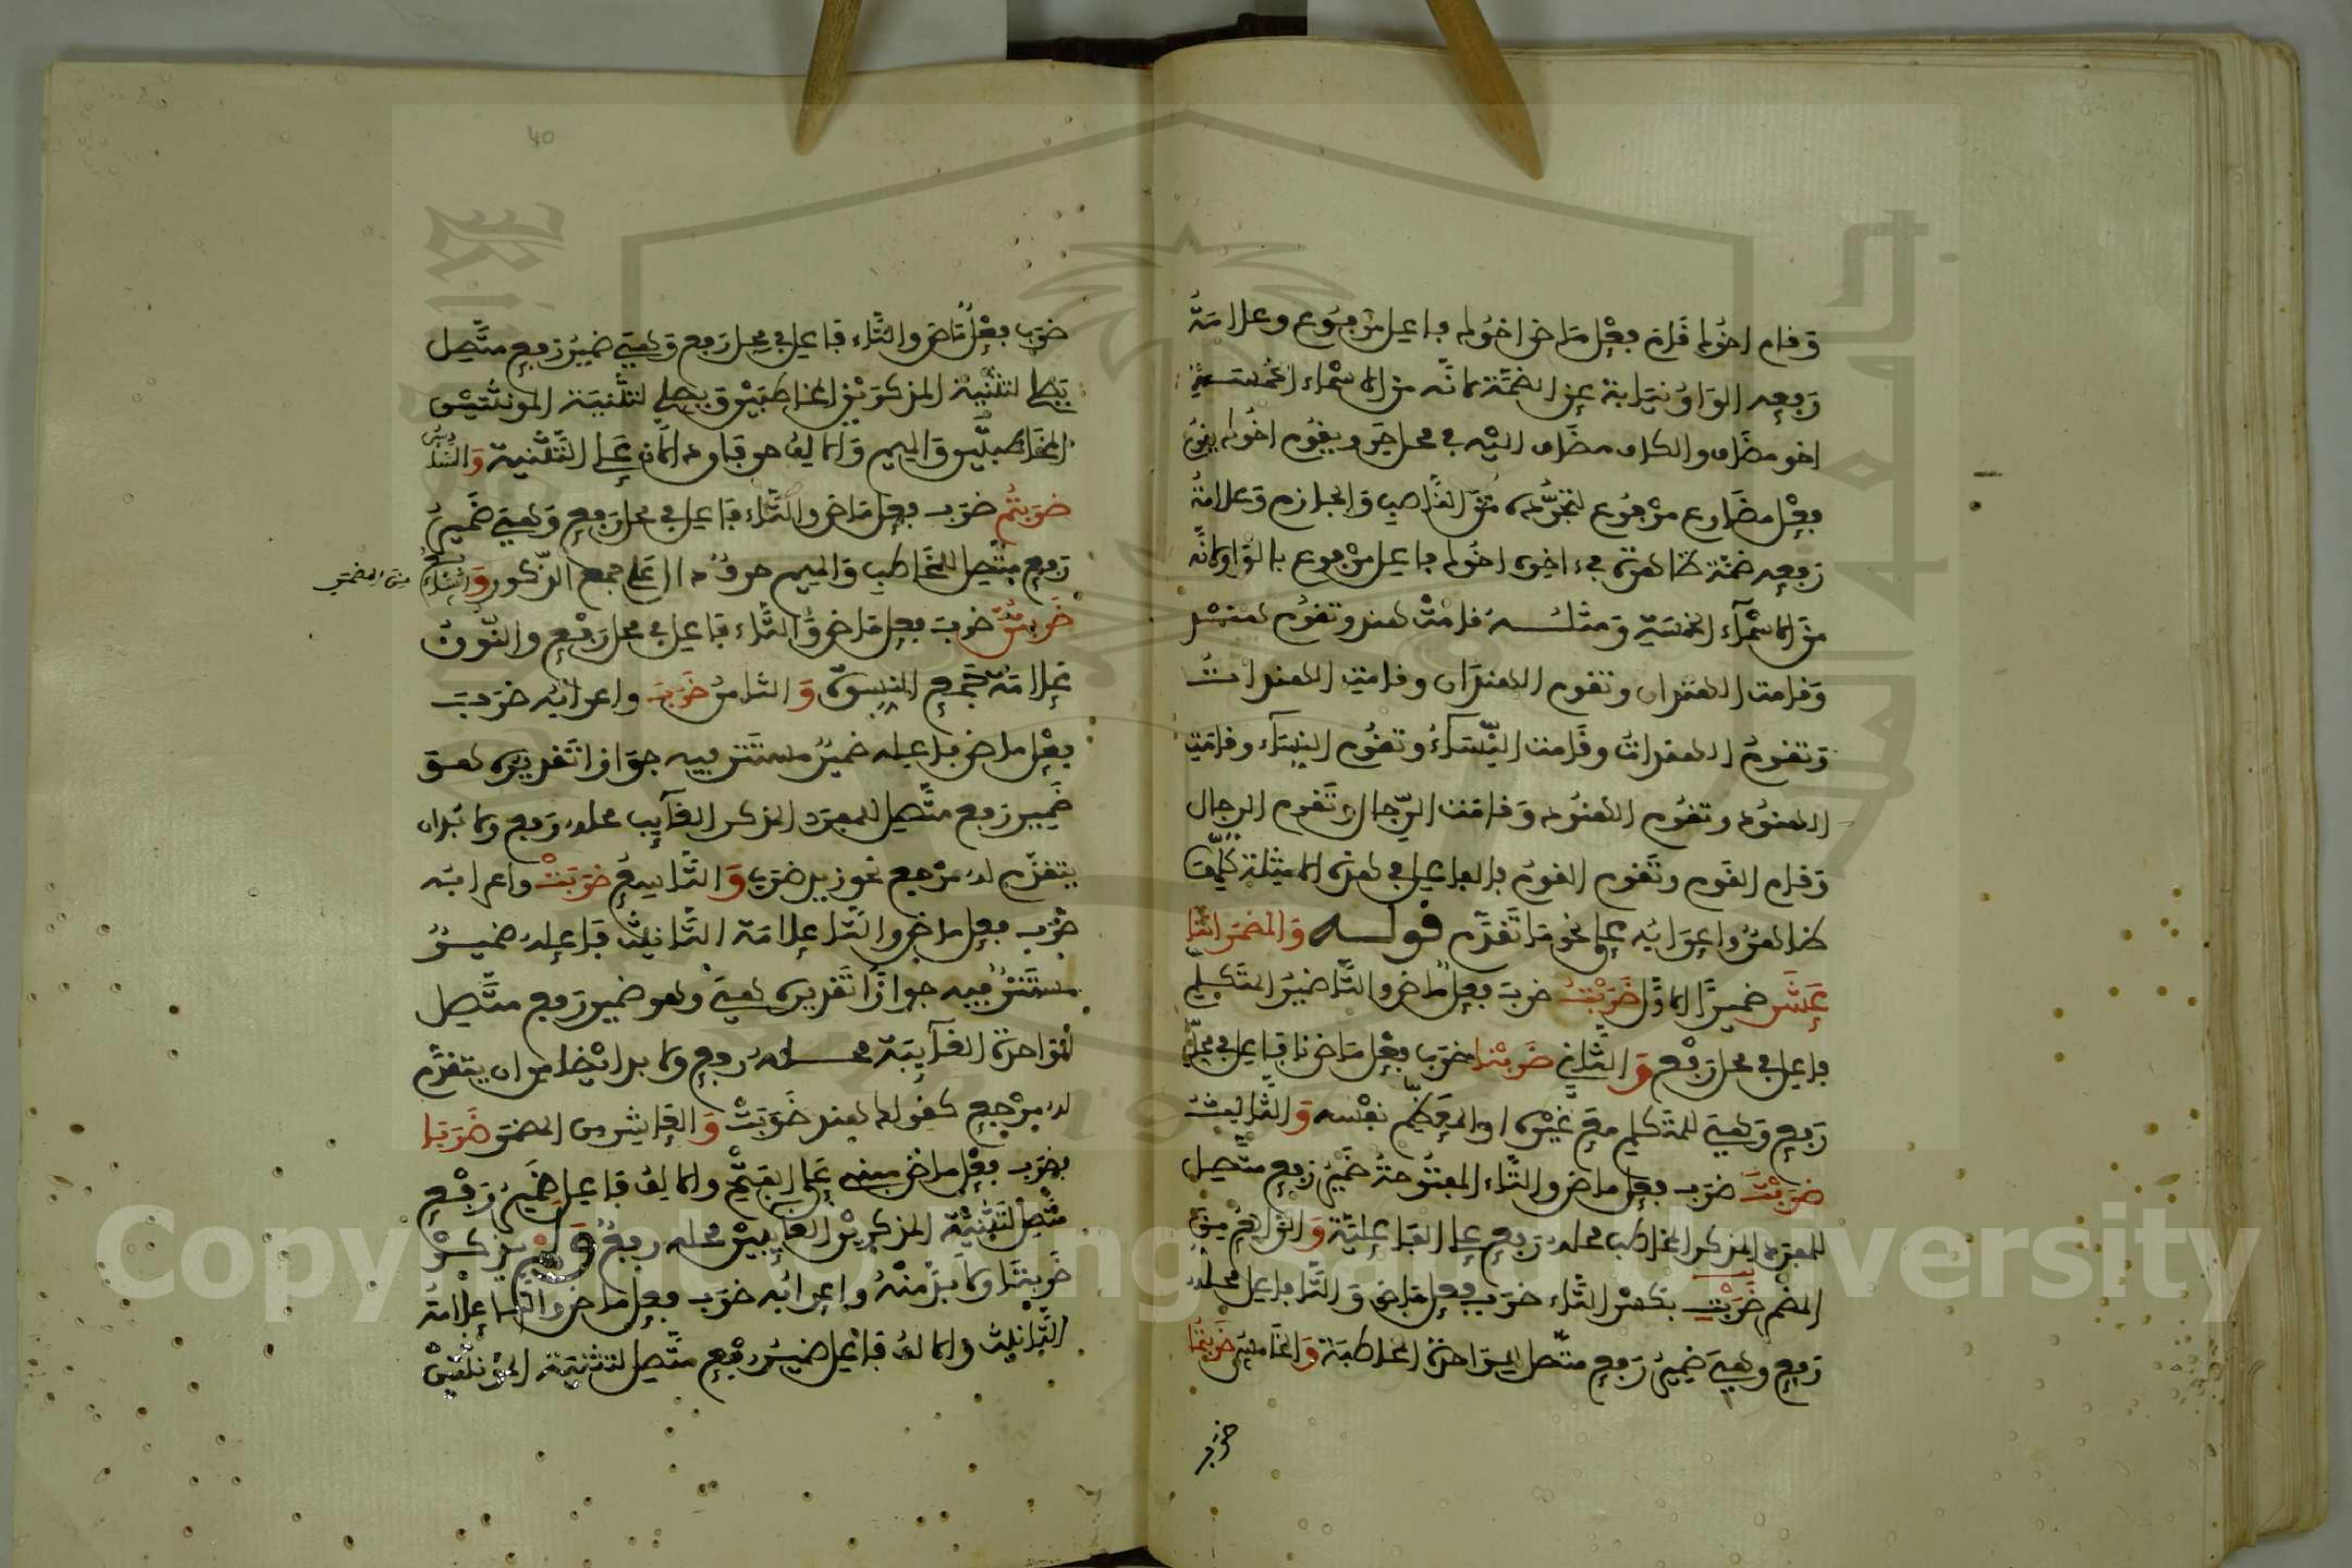 وقام اخوك قام فعل ماض اخوك فاعل مرفوع وعلامة
رفعه الواو نيابة عن الضمة لانه من الاسماء الخمسة
اخو مضاف والكاف مضاف اليه في محل جر ويقوم اخوك يقوم
فعل مضارع مرفوع لتجرده من الناصب والجازم وعلامة
رفعه ضمة ظاهرة في ءاخره اخوك فاعل مرفوع بالواو لانه
من الاسمآء الخمسة ومثله قامت هند وتقوم هند
وقامت الهندان وتقوم الهندان وقامت الهندات
وتقوم الهندات وقامت النسآء وتقوم النسآء وقامت
الهنود وتقوم الهنود وقامت الرجال وتقوم الرجال
وقام القوم وتقوم القوم فالفاعل في هذه الامثلة كلها
ظاهر واعرابه على نحو ما تقدم قوله والمضمر اثنا
عشر ضميرا الاول ضربت ضرب فعل ماض والتا ضمير المتكلم
فاعل في محل رفع والثاني ضربنا ضرب فعل ماض نا فاعل في محل
رفع وهي للمتكلم مع غيره او المعظم نفسه والثالث
ضربت ضرب فعل ماض والتاء المفتوحة ضمير رفع متصل
للمفرد المذكر المخاطب محله رفع على الفاعلية والرابع من
المضمر ضربت بكسر التاء ضرب فعل ماض والتا فاعل محله
رفع وهي ضمير رفع متصل للواحدة المخاطبة والخامس ضربتما
ضرب
40
ضرب فعل ماض والتاء فاعل في محل رفع وهي ضمير رفع متصل
يصلح لتثنية المذكرين المخاطبين ويصلح لتثنية المونثتين
المخاطبتين والميم والالف حرفان دالان على التثنية والسادس
ضربتم ضرب فعل ماض والتاء فاعل في محل رفع وهي ضمير
رفع متصل للمخاطب والميم حرف دال على جمع الذكور والسابع
من المضمر
ضربتن ضرب فعل ماض والتاء فاعل في محل رفع والنون
علامة جمع النسوة والثامن ضرب واعرابه ضرب
فعل ماض فاعله ضمير مستتر فيه جوازا تقديره هو
ضمير رفع متصل للمفرد المذكر الغآيب محله رفع ولا بد ان
يتقدم له مرجع نحو زيد ضرب والتاسع ضربت واعرابه
ضرب فعل ماض والتا علامة التانيث فاعله ضمير
مستتر فيه جوازا تقديره هي وهو ضمير رفع متصل
للواحدة الغآيبة محله رفع ولا بد ايضا من ان يتقدم
له مرجع كقولك هند ضربت والعاشر من المضمر ضربا
فضرب فعل ماض مبني على الفتح والالف فاعل ضمير رفع
متصل لتثنية المذكرين الغايبين محله رفع ولم يذكر
ضربتا ولا بد منه واعرابه ضرب فعل ماض والتا علامة
التانيث والالف فاعل ضمير رفع متصل لتثنية المونثتين
Copyright © King Saud University